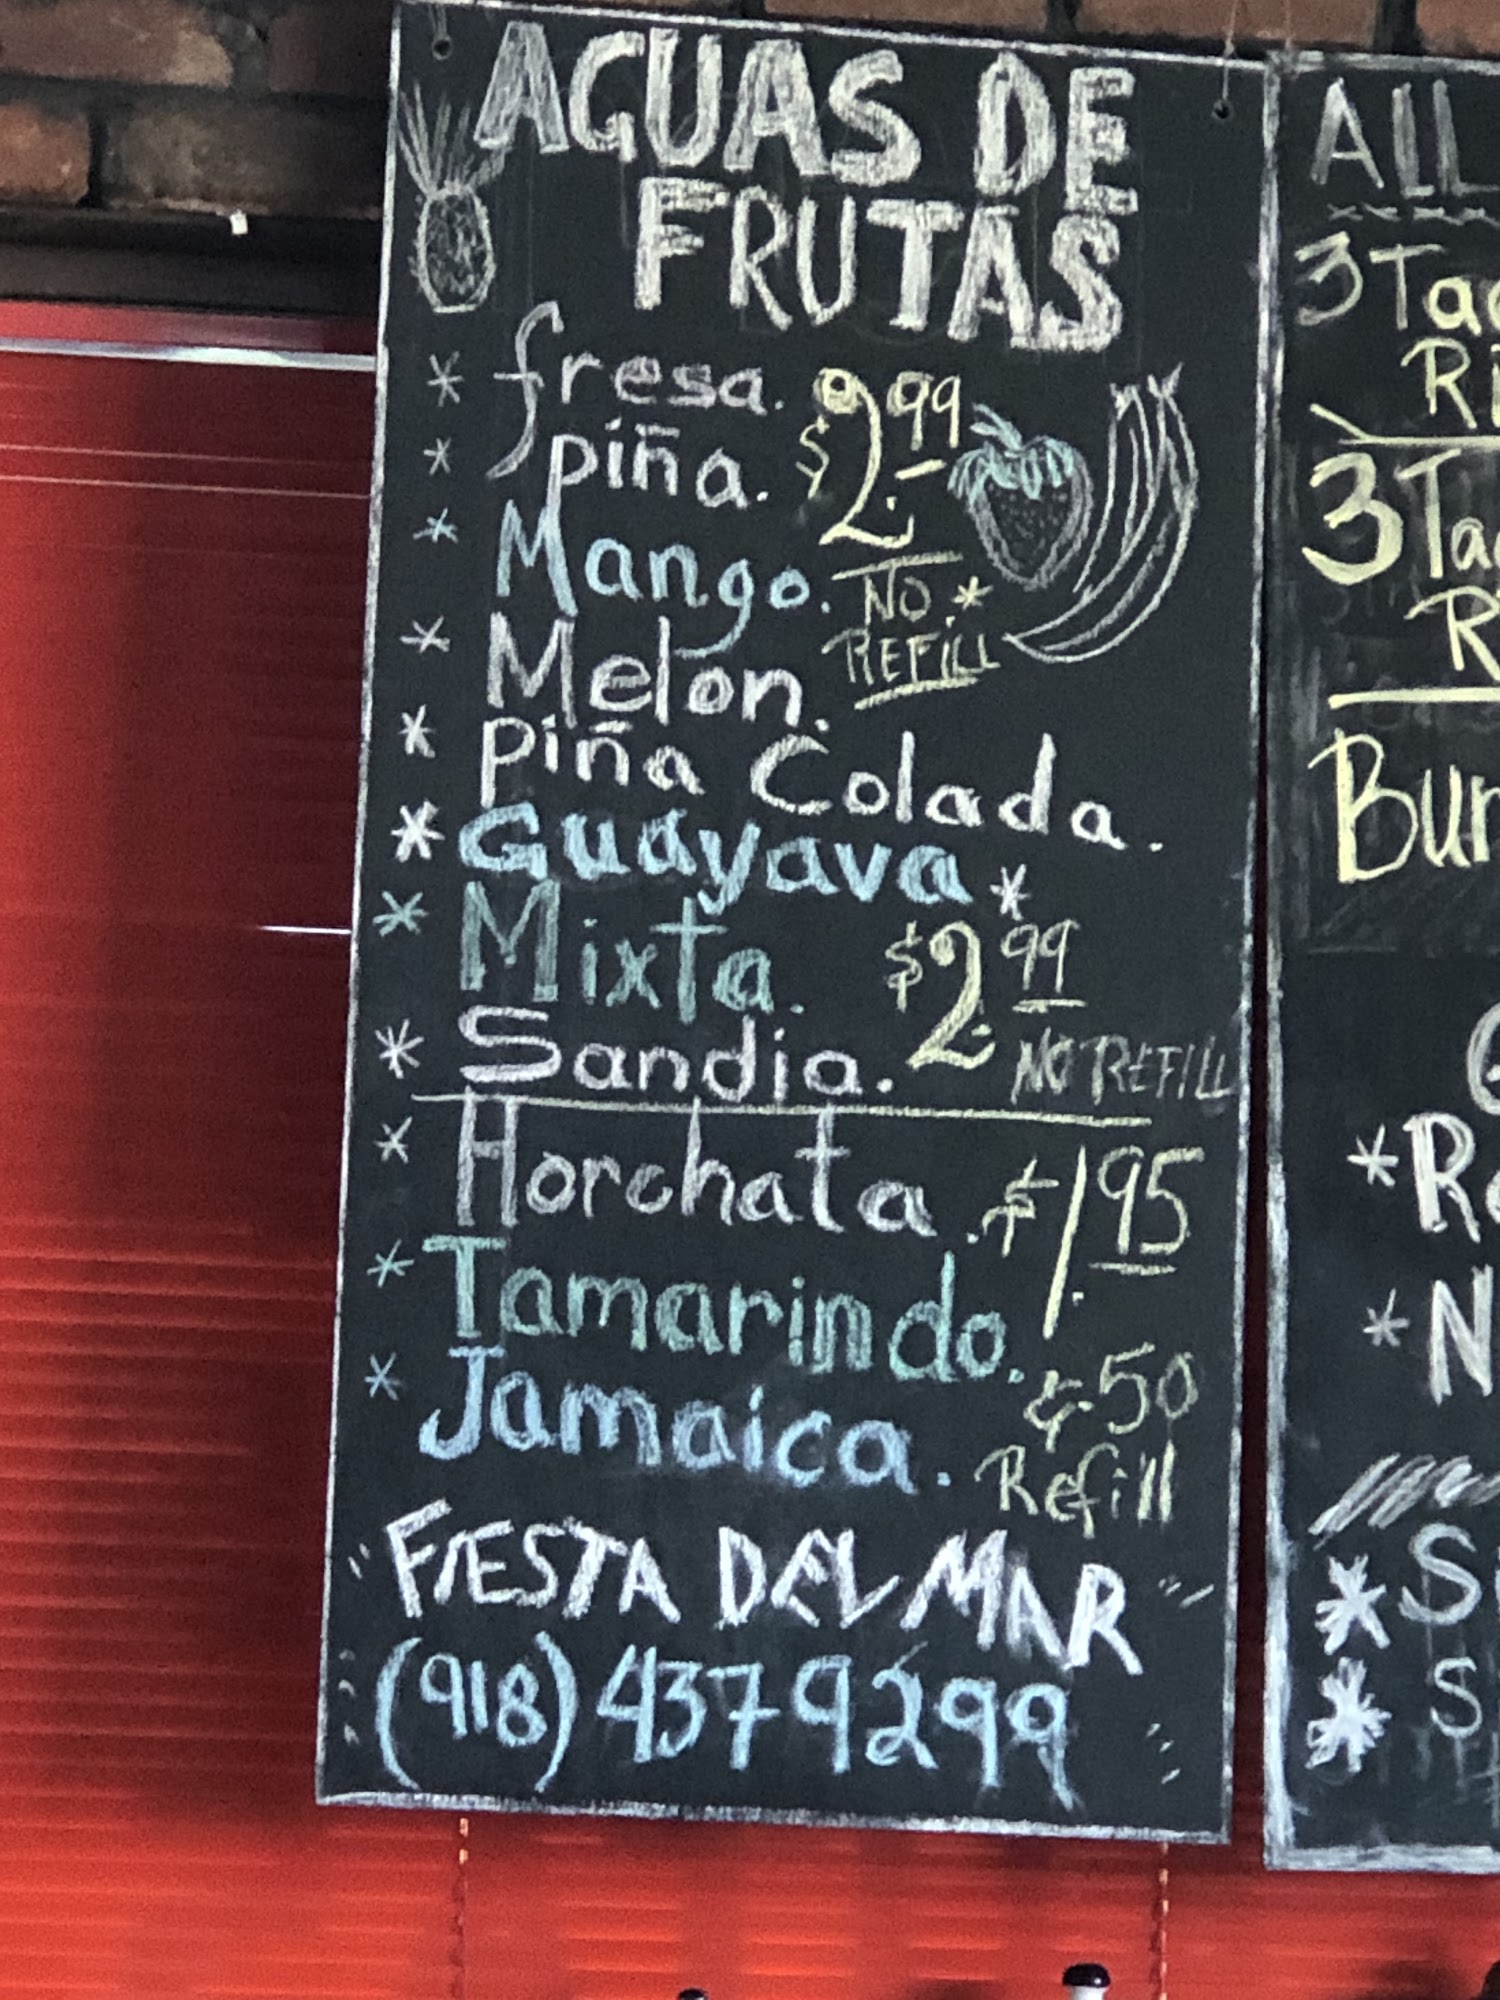 AGUAS DE
FRUTAS
* fresa. $2.99
* piña.
* Mango. NO *
REFILL
* Melon.
* Piña Colada.
* Guayava *
* Mixta. $2.99
* Sandia. NO REFILL
* Horchata. $1.95
* Tamarindo.
* Jamaica. .50
Refill
"FIESTA DEL MAR"
(918) 437 9299
ALL
3 Tac
Ri
3 Ta
R
Bur
* Re
* N
* S
* S